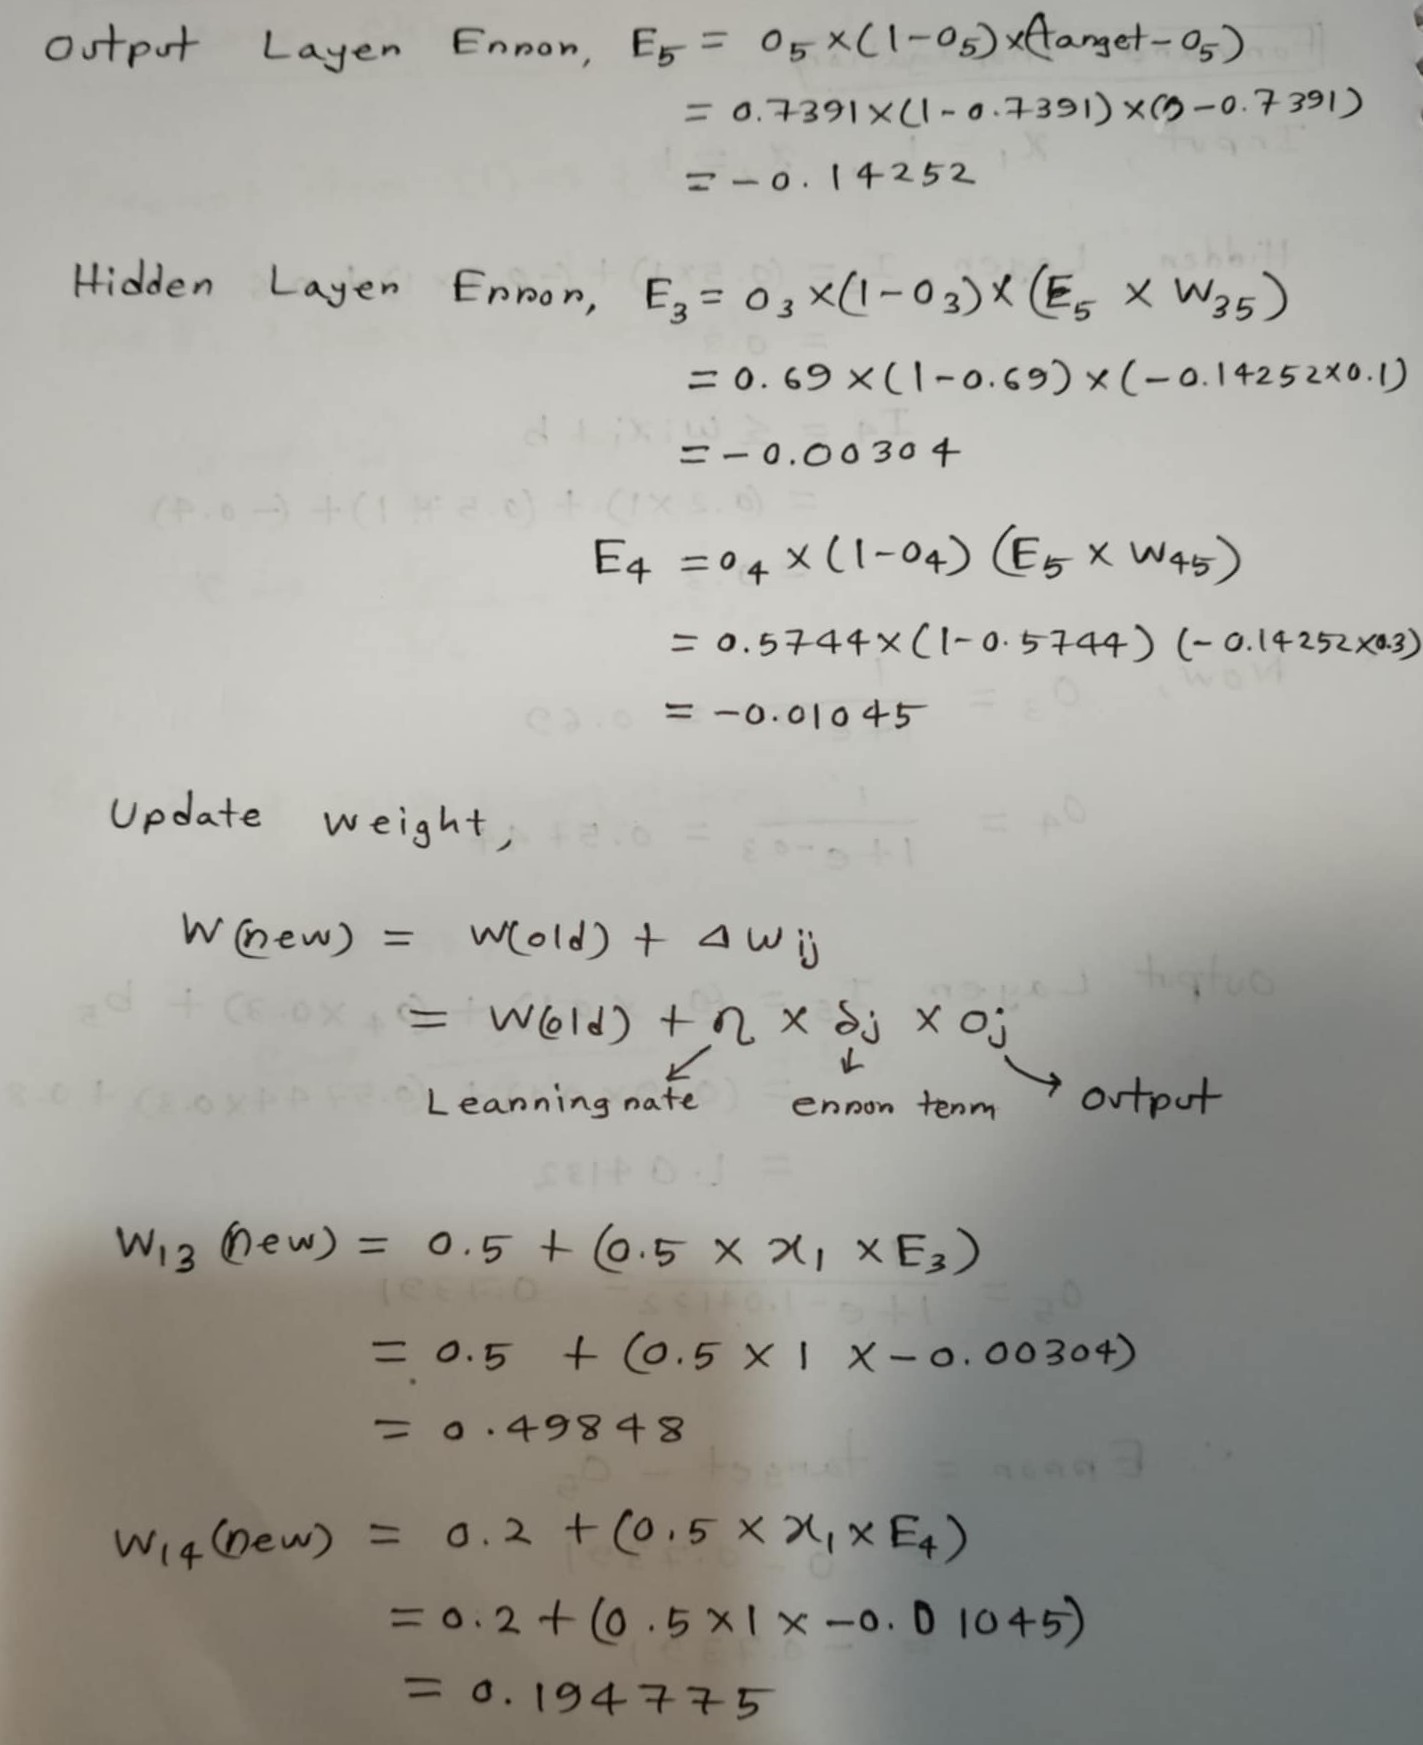 Output Layer Error, E₅ = O₅ × (1 - O₅) × (target - O₅)
= 0.7391 × (1 - 0.7391) × (0 - 0.7391)
= - 0.14252
Hidden Layer Error, E₃ = O₃ × (1 - O₃) × (E₅ × W₃₅)
= 0.69 × (1 - 0.69) × (- 0.14252 × 0.1)
= - 0.00304
E₄ = O₄ × (1 - O₄) (E₅ × W₄₅)
= 0.5744 × (1 - 0.5744) (- 0.14252 × 0.3)
= - 0.01045
Update weight,
W(new) = W(old) + ΔWij
= W(old) + η × δj × Oj
Learning rate error term output
W₁₃ (new) = 0.5 + (0.5 × x₁ × E₃)
= 0.5 + (0.5 × 1 × - 0.00304)
= 0.49848
W₁₄ (new) = 0.2 + (0.5 × x₁ × E₄)
= 0.2 + (0.5 × 1 × - 0.01045)
= 0.194775